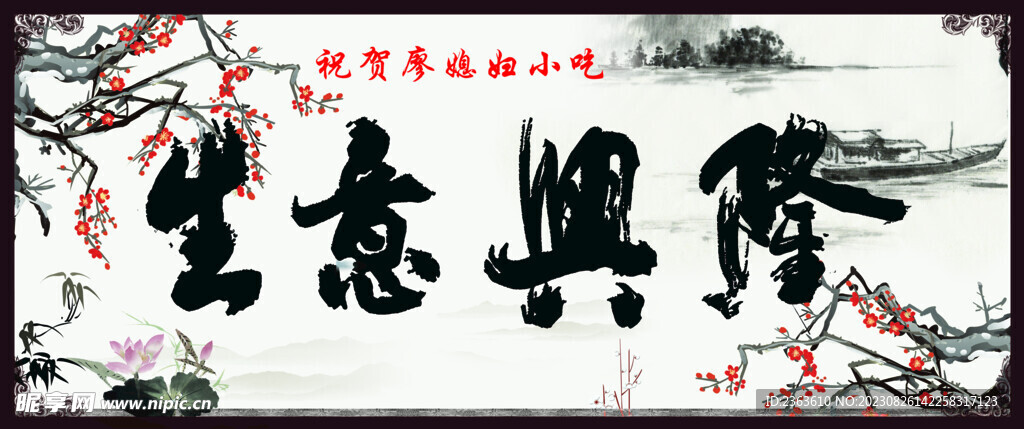 祝贺廖媳妇小吃
生意興隆
昵享网 www.nipic.cn
ID:2363610 NO:20230826142258317123